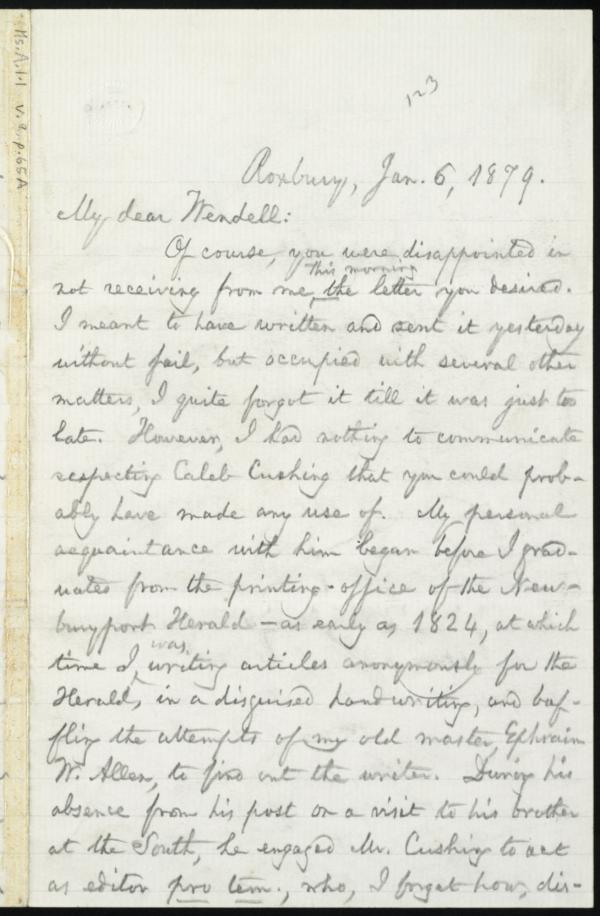 Ms.A.1.1 v.9, p.65A
123
Roxbury, Jan. 6, 1879.
My dear Wendell:
Of course, you were disappointed in
this morning
not receiving from me, the letter you desired.
I meant to have written and sent it yesterday
without fail, but occupied with several other
matters, I quite forgot it till it was just too
late. However, I had nothing to communicate
respecting Caleb Cushing that you could prob-
ably have made any use of. My personal
acquaintance with him began before I grad-
uated from the printing-office of the New-
buryport Herald — as early as 1824, at which
was
time I, writing articles anonymously for the
Herald, in a disguised handwriting, and baf-
fling the attempts of my old master, Ephraim
W. Allen, to find out the writer. During his
absence from his post on a visit to his brother
at the South, he engaged Mr. Cushing to act
as editor pro tem., who, I forget how, dis-